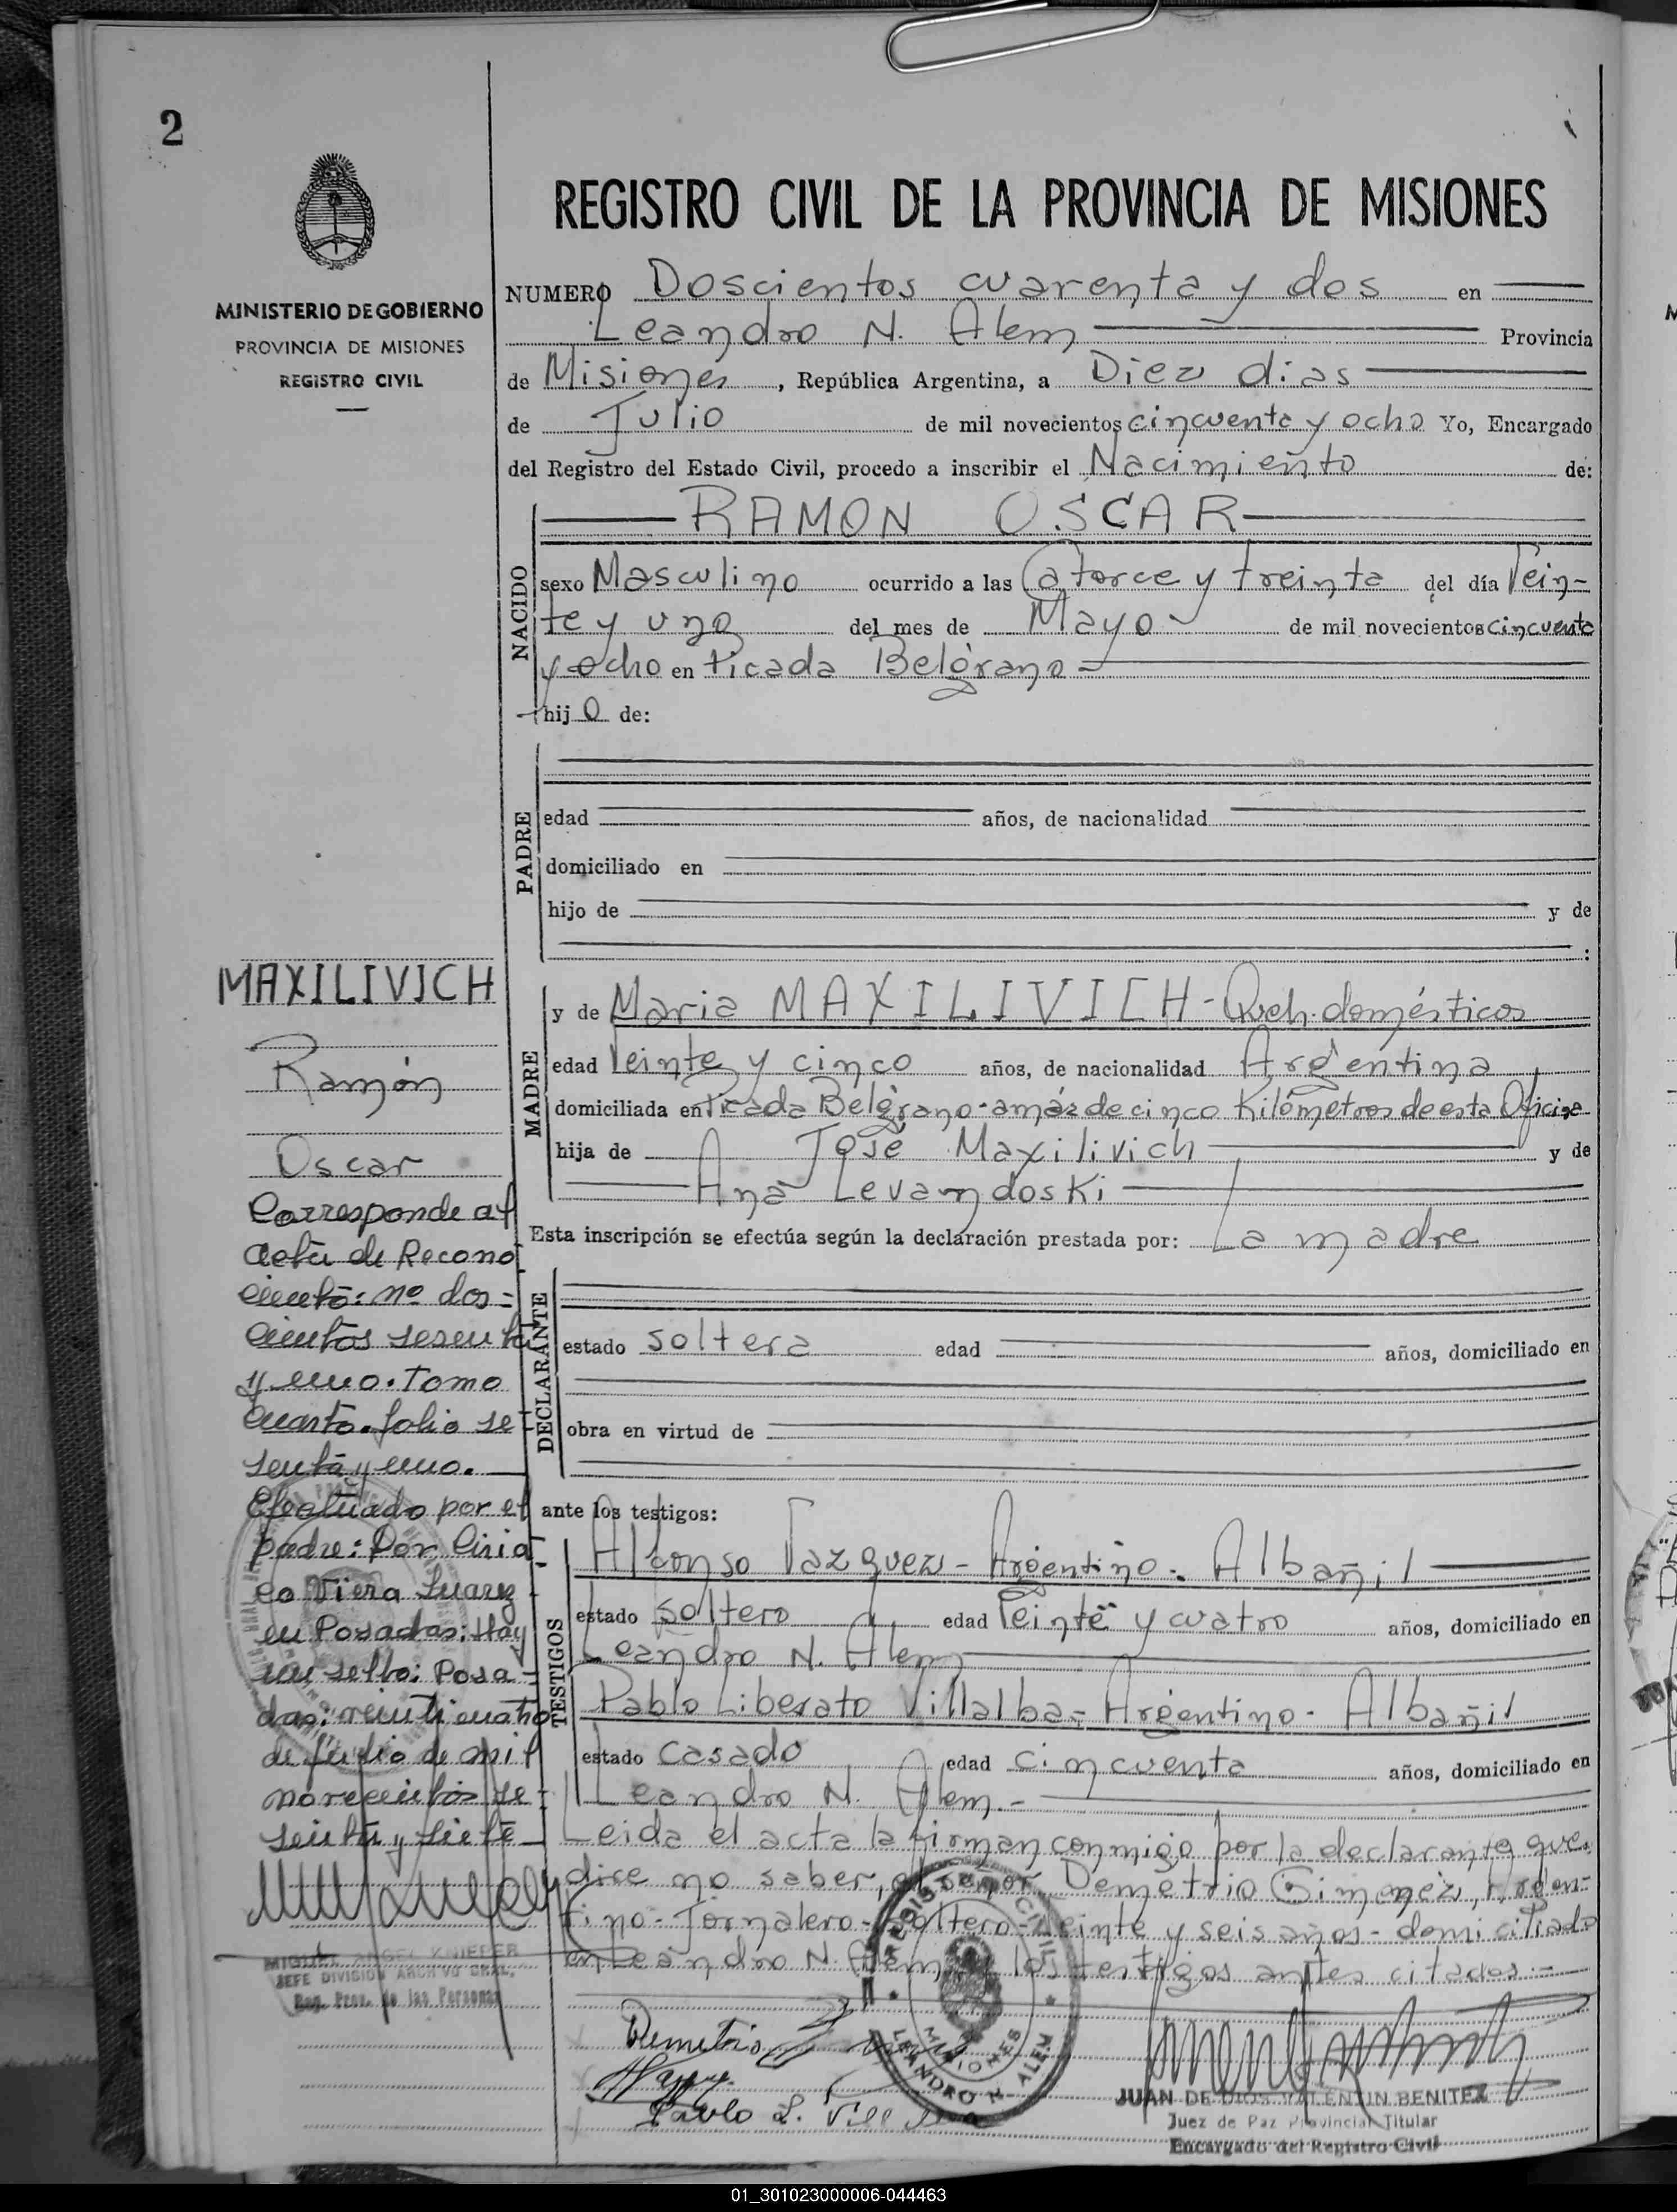 2
MINISTERIO DE GOBIERNO
PROVINCIA DE MISIONES
REGISTRO CIVIL
REGISTRO CIVIL DE LA PROVINCIA DE MISIONES
NUMERO Doscientos cuarenta y dos en
Leandro N. Alem Provincia
de Misiones, República Argentina, a Diez dias
de Julio de mil novecientos cincuenta y ocho Yo, Encargado
del Registro del Estado Civil, procedo a inscribir el Nacimiento de:
NACIDO
RAMON OSCAR
sexo Masculino ocurrido a las Catorce y treinta del día Vein-
te y uno del mes de Mayo de mil novecientos cincuenta
y ocho en Picada Belgrano
hijo de:
PADRE
edad años, de nacionalidad
domiciliado en
hijo de y de
:
MADRE
y de Maria MAXILIVICH - Queh. domésticos
edad Veinte y cinco años, de nacionalidad Argentina
domiciliada en Picada Belgrano - a más de cinco Kilómetros de esta Oficina
hija de José Maxilivich y de
Ana Levandoski
Esta inscripción se efectúa según la declaración prestada por: La madre
DECLARANTE
estado soltera edad años, domiciliado en
obra en virtud de
ante los testigos:
TESTIGOS
Alfonso Vazquez - Argentino - Albañil
estado soltero edad Veinte y cuatro años, domiciliado en
Leandro N. Alem
Pablo Liberato Villalba - Argentino - Albañil
estado casado edad cincuenta años, domiciliado en
Leandro N. Alem.-
Leida el acta la firman conmigo por la declarante que
dice no saber, el señor Demetrio Gimenez, Argen-
tino - Jornalero - soltero - Veinte y seis años - domiciliado
en Leandro N. Alem y los testigos antes citados.-
Demetrio
Pablo L. Villalba
REGISTRO CIVIL
MISIONES
LEANDRO N. ALEM
JUAN DE DIOS VALENTIN BENITEZ
Juez de Paz Provincial Titular
Encargado del Registro Civil
MAXILIVICH
Ramón
Oscar
Corresponde al
Acta de Recono
cimiento: nº dos=
cientos sesenta
y uno. Tomo
Cuarto. folio se
senta y uno.
Efectuado por el
padre: Por Ciria
co Viera Suarez
en Posadas: Hay
un sello: Posa-
das: veinticuatro
de Julio de mil
novecientos se-
senta y siete
MIGUEL ANGEL KNIEPER
JEFE DIVISION ARCHIVO GRAL.
Reg. Prov. de las Personas
01_301023000006-044463